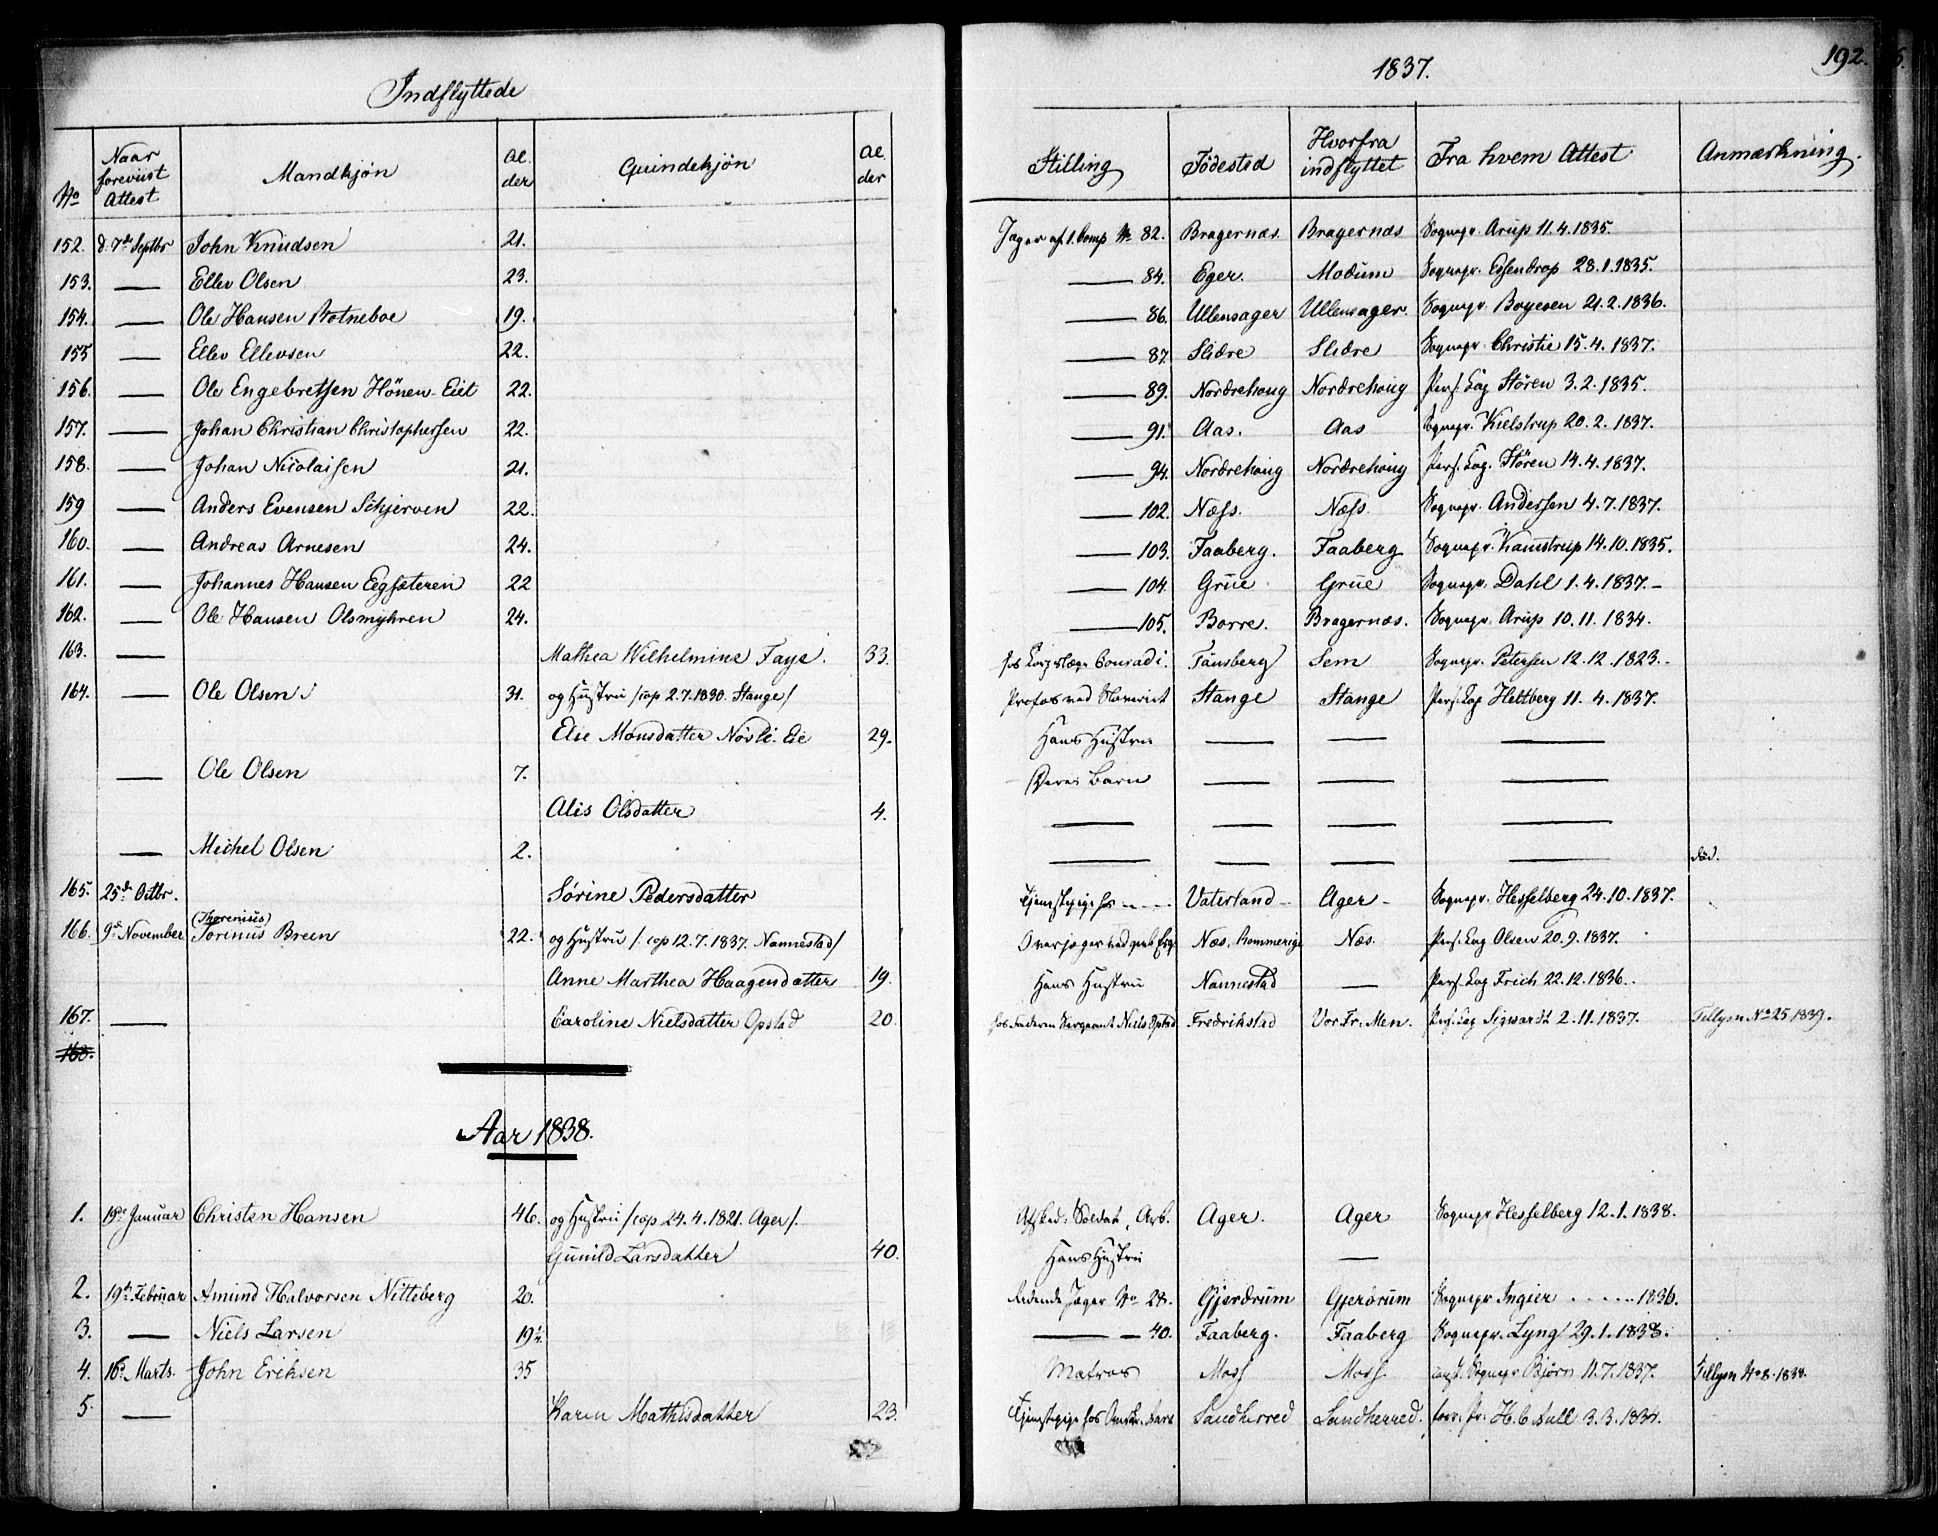 Indflyttede 1837. 192.
No Naar foreviist Attest Mandkjøn Alder Qvindekjøn Alder Stilling Fødested Hvorfra indflyttet Fra hvem Attest Anmærkning.
152. d. 7de Septbr John Knudsen 21. Jæger af 1. Comp No 82. Bragernæs. Bragernæs Sognepr. Arup 11.4.1835.
153. — Ellev Olsen 23. — 84. Eger. Modum Sognepr. Essendrop 28.1.1835.
154. — Ole Hansen Rotneboe 19. — 86. Ullensager Ullensager. Sognepr. Boyesen 21.2.1836.
155 — Ellev Ellevsen 22. — 87. Slidre Slidre Sognepr. Christie 15.4.1837.
156. — Ole Engebretsen Hönen-Eiet 22. — 89. Nordrehoug Nordrehoug Pers. Cap. Stören 3.2.1835.
157. — Johan Christian Christophersen 22. — 91. Aas. Aas Sognepr. Kielstrup 20.2.1837.
158. — Johan Nicolaisen 21. — 94. Nordrehoug Nordrehoug Pers. Cap. Stören 14.4.1837.
159 — Anders Evensen Schjerven 22. — 102. Næss. Næss Sognepr. Anderssen 4.7.1837.
160. — Andreas Arnesen 24. — 103. Faaberg. Faaberg Sognepr. Kamstrup 14.10.1835.
161. — Johannes Hansen Eegsæteren 22 — 104. Grue Grue Sognepr. Dahl 1.4.1837.—
162. — Ole Hansen Olsmyhren 24. — 105. Borre. Bragernæs. Sognepr. Arup 10.11.1834.
163. — Mathea Wilhelmine Faye. 33. hos Conradi. Tönsberg Sem Sognepr. Petersen 12.12.1823.
164. — Ole Olsen 31. og Hustru /cop 2.7.1830. Stange/ Profos ved Slaveriet Stange Stange Pers. Cap Heltberg 11.4.1837.
Else Monsdatter Eie 29. Hans Hustru — — —
— Ole Olsen 7. Deres Barn — — —
Alis Olsdatter 4. — — — —
— Michel Olsen 2. — — — — død.
165. 25de Octbr. Sørine Pedersdatter Tjenstepige hos - - - Vaterland Ager - Sognepr. Hesselberg 24.10.1837.
(Thorenius)
166. 9de November Torinus Breen 22. og Hustru /: cop 12.7.1837. Nannestad/ Overjæger ved Næs, Rommerige Næs. Pers. Cap Olsen 20.9.1837.
Anne Marthea Haagensdatter 19. Hans Hustru Nannestad — Pers. Cap Frich 22.12.1836.
167. — Caroline Nielsdatter Opstad 20. hos Faderen Sergeant Niels Opstad Fredrikstad Vor Fr. Men. Pers. Cap Sigwardt 2.11.1837. Tillysn No 25 1839.
168.
Aar 1838.
1. 19de Januar Christen Hansen 46. og Hustru /cop 24.4.1821. Ager/. Afsked. Soldat, Arb. Ager. Ager Sognepr Hesselberg 12.1.1838.
Gunild Larsdatter 40. Hans Hustru —
2. 19de Februar Amund Halvorsen Nitteberg 20. Ridende Jæger No 28. Gjerdrum Gjerdrum Sognepr Ingier . . . . . . 1836.
3. — Niels Larsen 19½ — — 40. Faaberg. Faaberg Sognepr. Lyng 29.1.1838.
4. 16de Marts. John Eriksen 35 Matros Moss Moss. const. Sognepr Bjørn 11.7.1837. Tillysn No 8. 1838.
5. — Karen Mathisdatter 23. Tjenstepige hos Sandherred Sandherred. forr. Pr. H. C. Aall 3.3.1834.